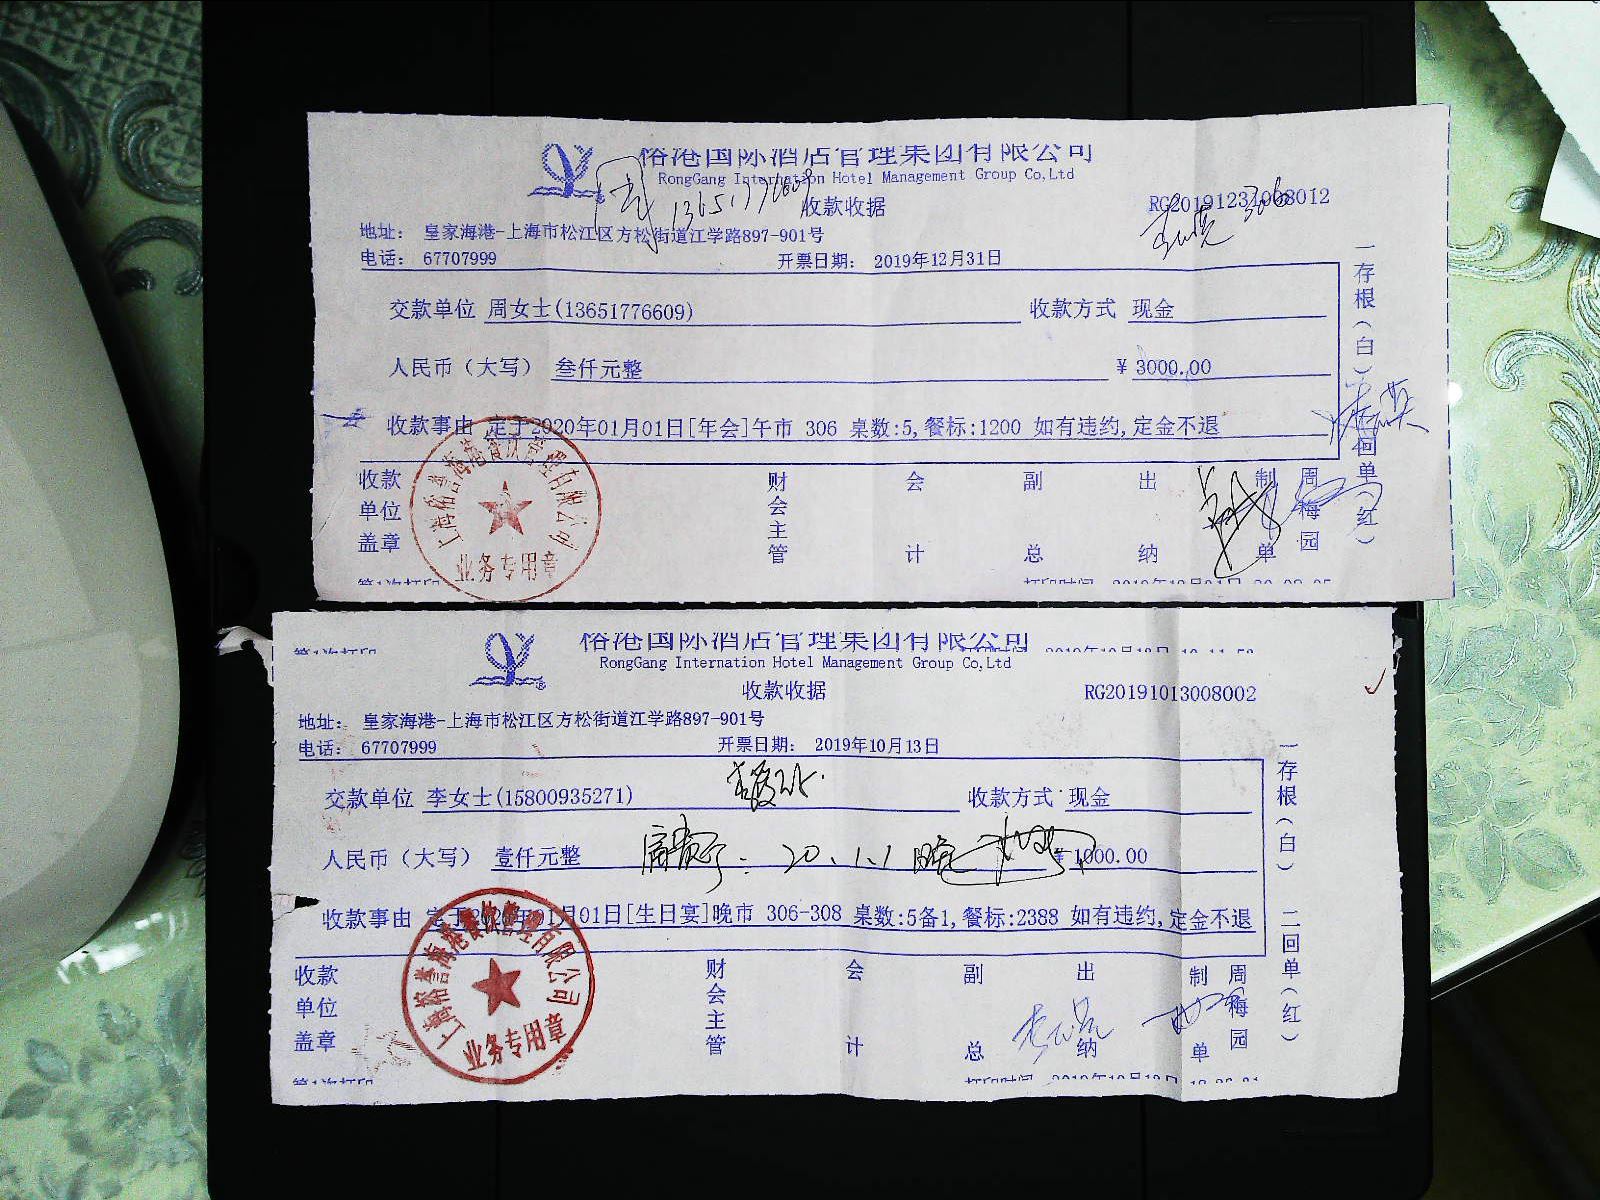 裕港国际酒店管理集团有限公司
RongGang Internation Hotel Management Group Co,Ltd
13651776609
收款收据
RG20191231008012
306
地址: 皇家海港-上海市松江区方松街道江学路897-901号
电话: 67707999 开票日期: 2019年12月31日
交款单位 周女士(13651776609) 收款方式 现金
人民币(大写) 叁仟元整 ¥ 3000.00
收款事由 定于2020年01月01日[年会]午市 306 桌数:5,餐标:1200 如有违约,定金不退
一存根(白) 二回单(红)
收款单位盖章 财会主管 会计 副总 出纳 制单 周梅园
上海裕誉海港餐饮管理有限公司
业务专用章
第1次打印
裕港国际酒店管理集团有限公司
第1次打印
RongGang Internation Hotel Management Group Co,Ltd
收款收据 RG20191013008002
地址: 皇家海港-上海市松江区方松街道江学路897-901号
电话: 67707999 开票日期: 2019年10月13日
交款单位 李女士(15800935271) 收款方式 现金
人民币(大写) 壹仟元整 20.1.1 晚 ¥ 1000.00
收款事由 定于2020年01月01日[生日宴]晚市 306-308 桌数:5备1,餐标:2388 如有违约,定金不退
一存根(白) 二回单(红)
收款单位盖章 财会主管 会计 副总 出纳 制单 周梅园
上海裕誉海港餐饮管理有限公司
业务专用章
第1次打印